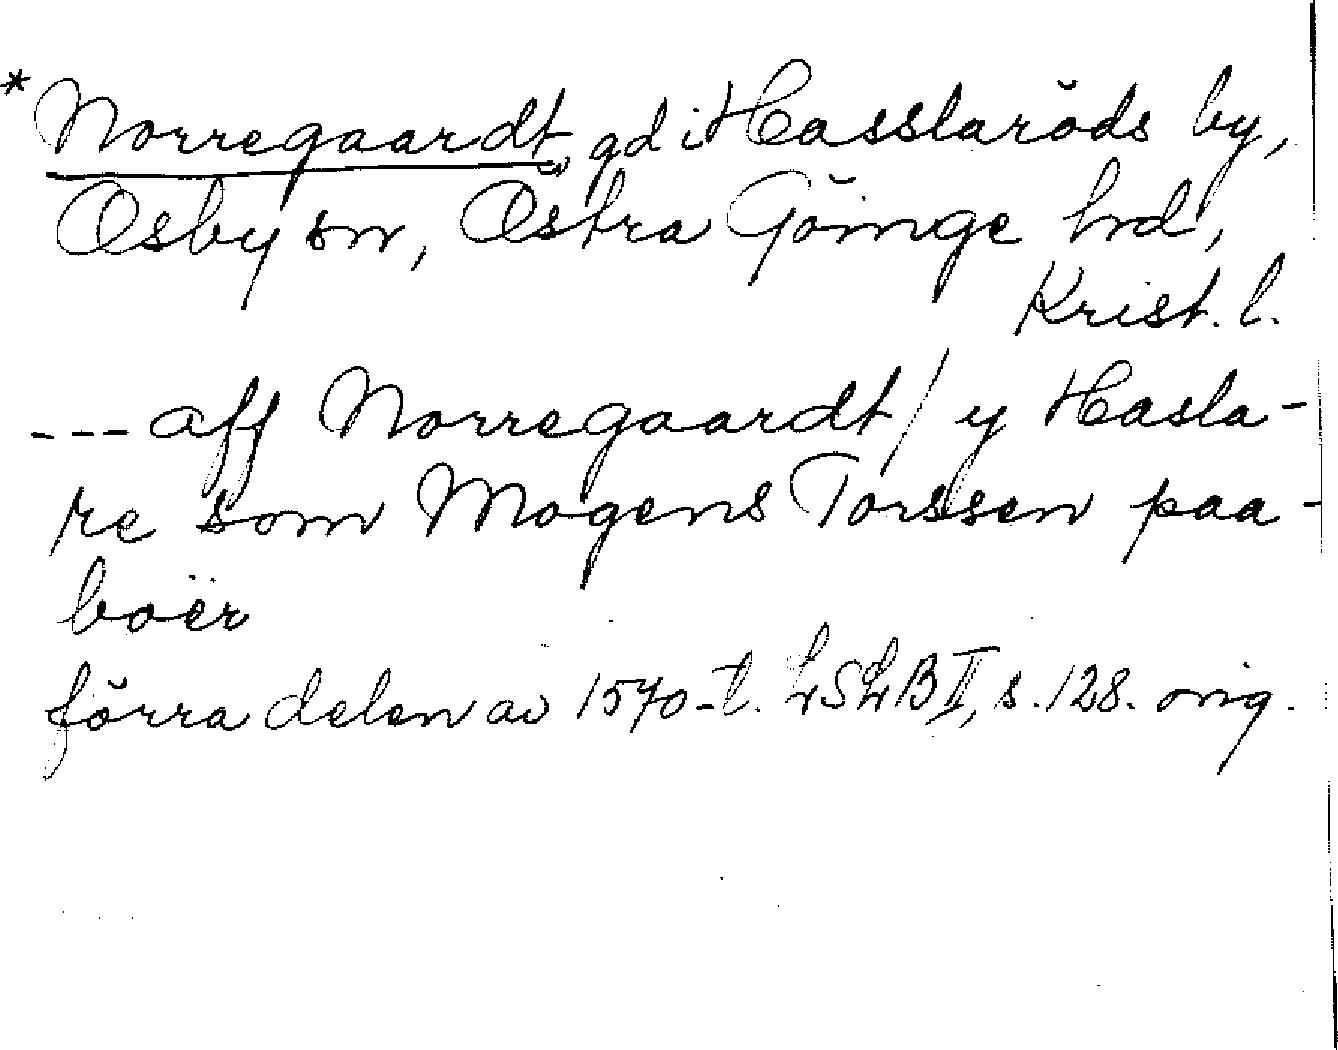 * Norregaardt, gd i Hasslaröds by,
Osby sn, Östra Göinge hrd,
Krist. l.
--- aff Norregaardt / y Hasla-
re som Mogens Torssen paa-
boër
förra delen av 1570-t. LSLB II, s. 128. orig.